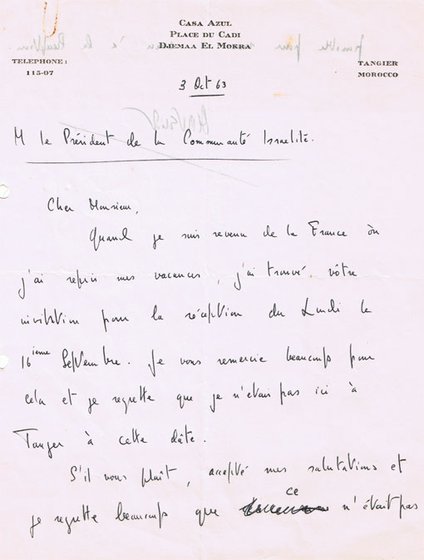 CASA AZUL
PLACE DU CADI
DJEMAA EL MOKRA
TELEPHONE:
115-07
TANGIER
MOROCCO
3 Oct 63
M le Président de la Communauté Israelité.
Cher Monsieur,
Quand je suis revenu de la France où
j'ai repris mes vacances, j'ai trouvé vôtre
invitation pour la réception du Lundi le
16ieme Septembre. Je vous remercie beaucoup pour
cela et je regrette que je n'étais pas ici à
Tanger à cette dâte.
S'il vous plaît, accepté mes salutations et
je regrette beaucoup que ce n'était pas